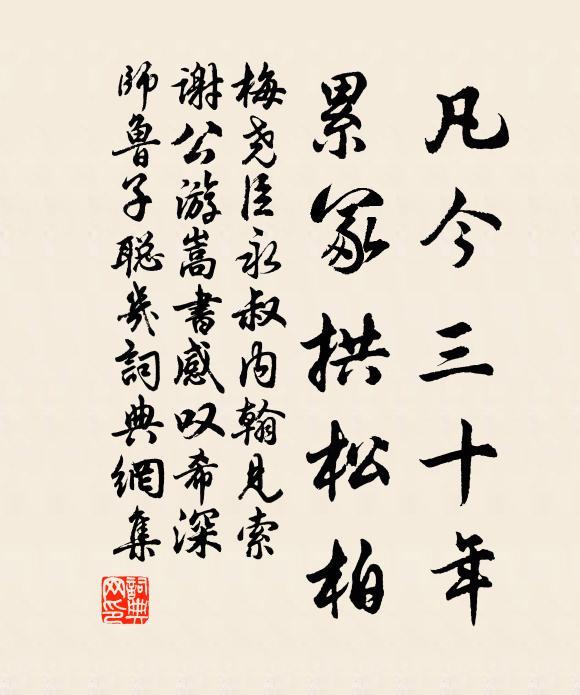 凡今三十年
累冢拱松柏
梅尧臣永叔内翰见索
谢公游嵩書感叹希深
师鲁子聪幾詞典網集
詞典網印